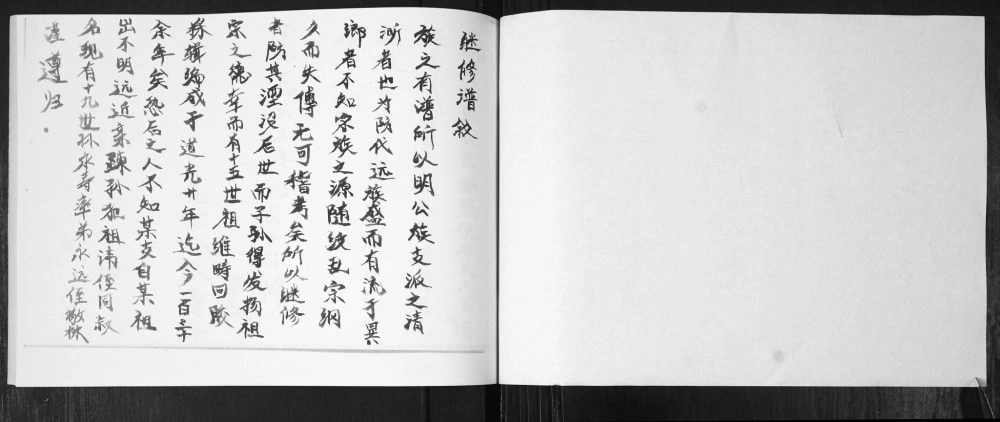 继修谱敘
族之有谱所以明公族支派之清
淅者也为防代远族盛而有流于異
鄉者不知宗族之源随统乱宗綱
久而失傳无可稽考矣所以继修
者防其湮没后世而子孙得发扬祖
宗之德幸而有十五世祖維時回胶
採缉编成于道光廿年迄今一百三十
余年矣恐后之人不知某支自某祖
出不明远近亲踈孙犯祖讳侄同叔
名现有十九世孙来寿率弟永远侄敬林
谨遵归。